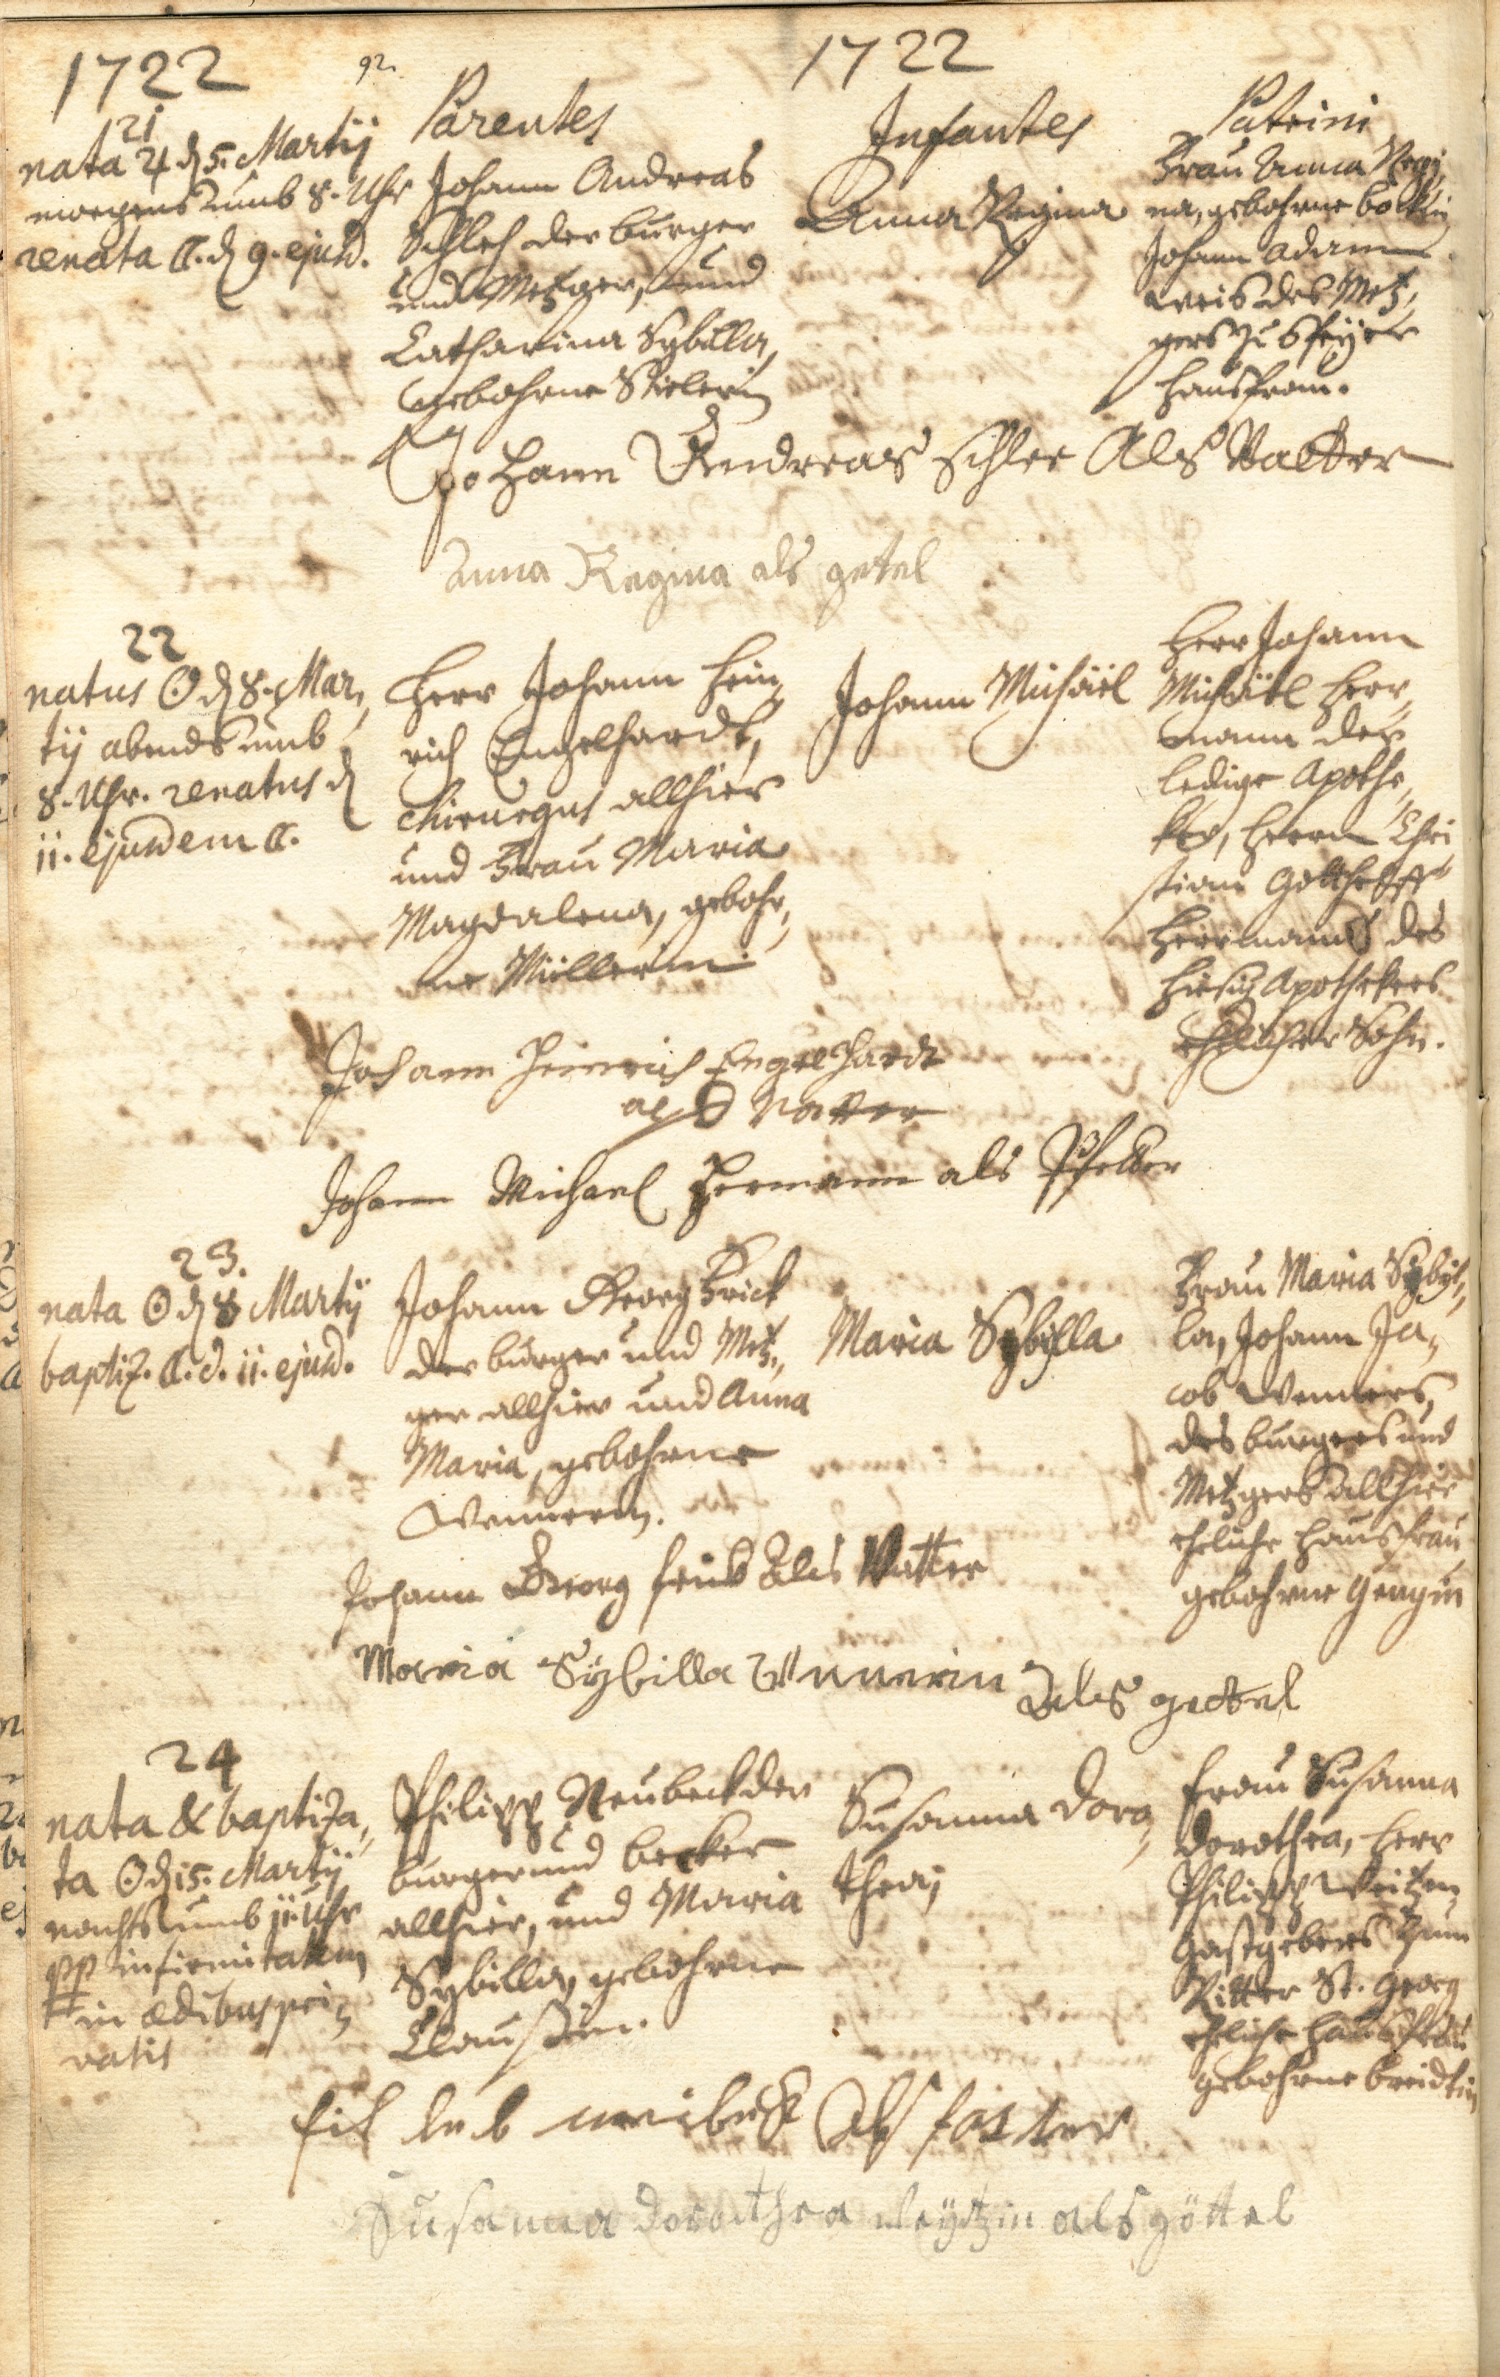 1722
92.
1722
Parentes
Infantes
Patrini
21
nata ♃ d 5. Martij
morgens umb 8. Uhr
renata ☾. d 9. ejusd.
Johann Andreas
Schleh der burger
und Metzger, und
Catharina Sybilla,
gebohrne
Anna Regina
Frau Anna Regi,
na, gebohrne
Johann Adam
weis des Metz,
gers zu Speyer
Hausfrau.
Johann Andreas schlee Als Vatter
Anna Regina als getel
22
natus ☉ d 8. Mar,
tij abends umb
8. Uhr. renatus d
11. ejusdem ☾.
Herr Johann Hein,
rich Engelhardt,
Chirurgus allhier
und Frau Maria
Magdalena, gebohr,
ne Müllerin.
Johann Michäel
Herr Johann
Michäel Herr,
mann der
ledige Apothe,
ker, Herrn Chri
stian Gotthelff
Herrmanns des
hiesig Apothekers
ehelicher Sohn.
Johann Heinrich Engelhardt
als Vatter
Johann Michael Hermann als Pfetter
23.
nata ☉ d 8 Martij
baptiz. ☾. d. 11. ejusd.
Johann Georg Frick
der burger und Metz,
ger allhier und Anna
Maria, gebohrne
Wennerin.
Maria Sybilla
Frau Maria Sybil,
la, Johann Ja,
cob Wenners,
des burgers und
Metzgers allhier
eheliche Hausfrau
gebohrne
Johann Georg Als Vatter
Maria Sybilla Wennerin Als gettel
24
nata & baptiza,
ta ☉ d 15. Martij
nachts umb 11. Uhr
pp infirmitatem
in ædibus pri,
vatis
Philipp Neubeck der
burger und becker
allhier, und Maria
Sybilla, gebohrne
Claußin.
Susanna Doro,
thea,
Frau Susanna
Dorothea, Herr
Philipp Weitzen
Gastgebers Zum
Ritter St. Georg
eheliche Hausfrau
gebohrne breidtin
Als fatter
Susanna dorothea weytzin als göttel